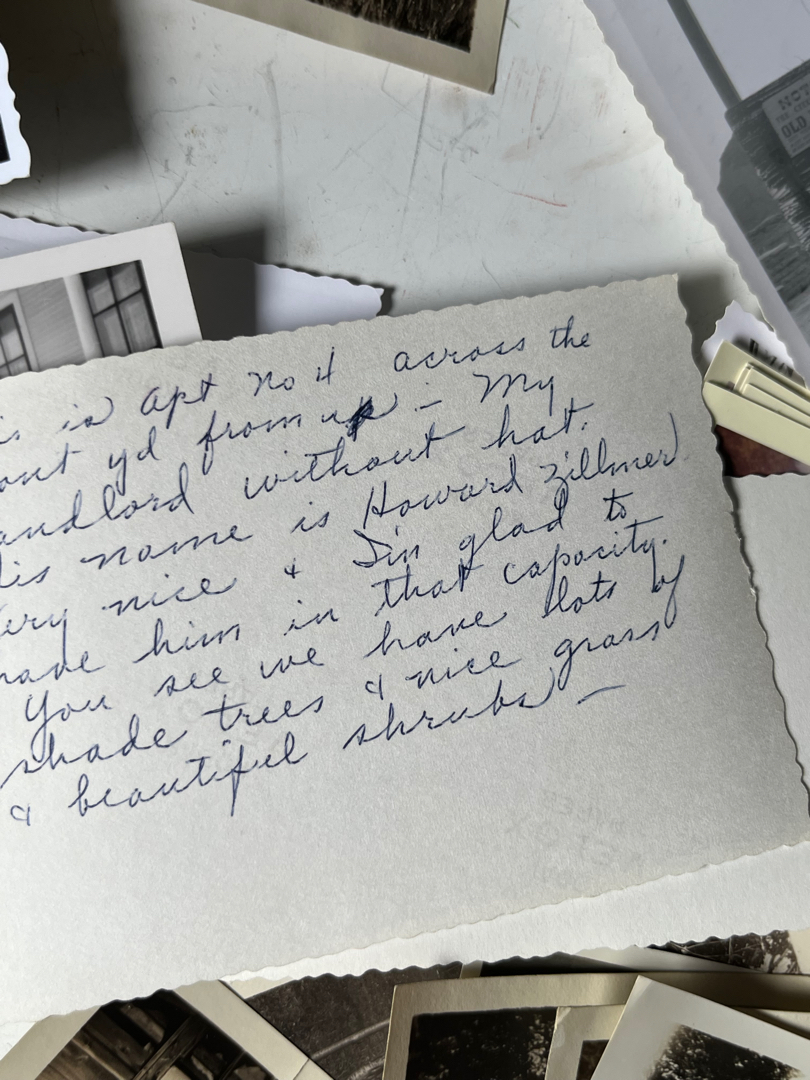 is is apt no 4 across the
ont yd from us - My
andlord without hat.
is name is Howard Zillmer
ery nice & I'm glad to
have him in that capacity.
You see we have lots of
shade trees & nice grass
& beautiful shrubs -
OLD